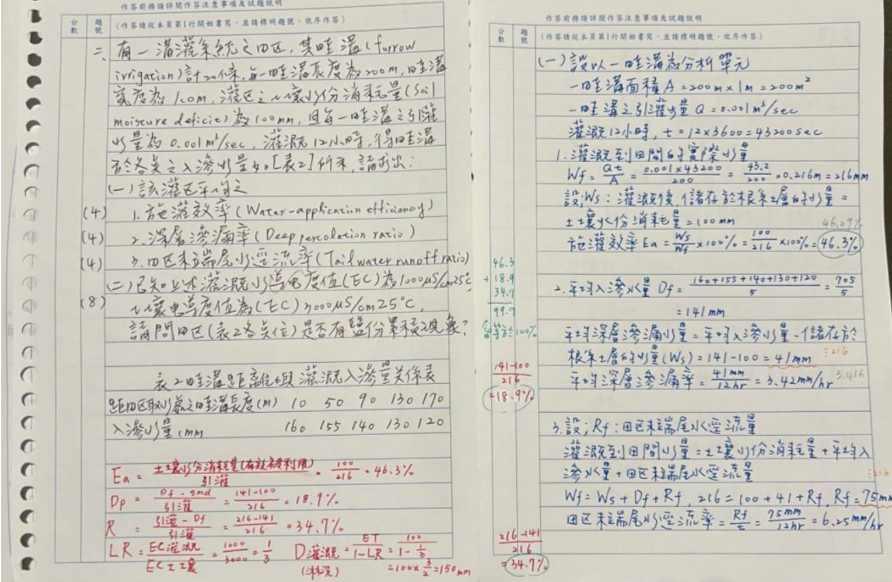 作答前務請詳閱作答注意事項及試題說明
分數 題號 (作答請從本頁第1行開始書寫，並請標明題號，依序作答)
二、有一溝灌系統之田區，其畦溝(furrow
irrigation)計二條，每一畦溝長度為200m，畦溝
寬度為1.0m，灌區之土壤水份消耗量(Soil
moisture deficit)為100mm，且每一畦溝之引灌
水量為0.001m³/sec，灌溉12小時，得畦溝
於各點之入滲水量如[表2]所示，請求出：
(一)該灌區平均之
(4) 1.施灌效率(Water-application efficiency)
(4) 2.深層滲漏率(Deep percolation ratio)
(4) 3.田區末端尾水逕流率(Tail water runoff ratio)
(二)已知上述灌溉水導電度值(EC)為1000μS/cm25℃
(8) 土壤電導度值為(EC)3000μS/cm25℃
請問田區(表2各點位)是否有鹽份累積現象？
表2畦溝距離與灌溉入滲量關係表
距田區取水處之畦溝長度(m) 10 50 90 130 170
入滲水量(mm 160 155 140 130 120
Ea = 土壤水分消耗量(有效被利用)/引灌 = 100/216 = 46.3%
Dp = Df - smd/引灌 = 141-100/216 = 18.9%
R = 引灌 - Df/引灌 = 216-141/216 = 34.7%
LR = EC灌溉/EC土壤 = 1000/3000 = 1/3 D灌溉 = ET/1-LR = 100/1-1/3
(淋洗) =100×3/2=150mm
作答前務請詳閱作答注意事項及試題說明
分數 題號 (作答請從本頁第1行開始書寫，並請標明題號，依序作答)
(一)設以一畦溝為分析單元
一畦溝面積A=200m×1m=200m²
一畦溝之引灌水量Q=0.001m³/sec
灌溉12小時，t=12×3600=43200sec
1.灌溉到田間的實際水量
Wf = Qt/A = 0.001×43200/200 = 43.2/200 = 0.216m = 216mm
設；Ws：灌溉後，儲存於根系土層的水量=
土壤水份消耗量=100mm 46.29%
施灌效率Ea = Ws/Wf×100% = 100/216×100% = 46.3%
46.3
+ 18.9
34.7
99.9
會等於100%
2.平均入滲水量Df = 160+155+140+130+120/5 = 705/5
=141mm
平均深層滲漏水量=平均入滲水量-儲存於
根系土層的水量(Ws)=141-100=41mm ÷216
平均深層滲漏率=41mm/12hr=3.42mm/hr 3.416
141-100/216
=18.9%
3.設；Rf：田區末端尾水逕流量
灌溉到田間水量=土壤水份消耗量+平均入
滲水量+田區末端尾水逕流量 ÷216
Wf=Ws+Df+Rf，216=100+41+Rf，Rf=75mm
田區末端尾水逕流率=Rf/t=75mm/12hr=6.25mm/hr
216-141/216
=34.7%